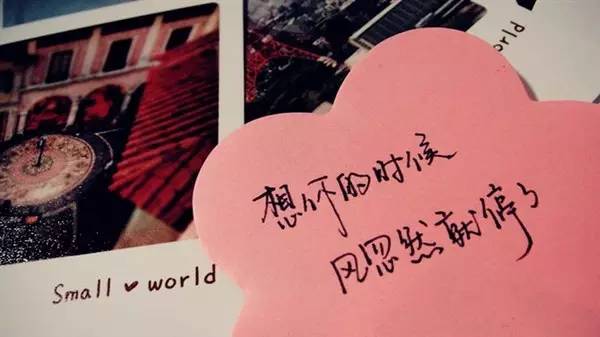 想你的时候
风忽然就停了
Small ❤ world
world